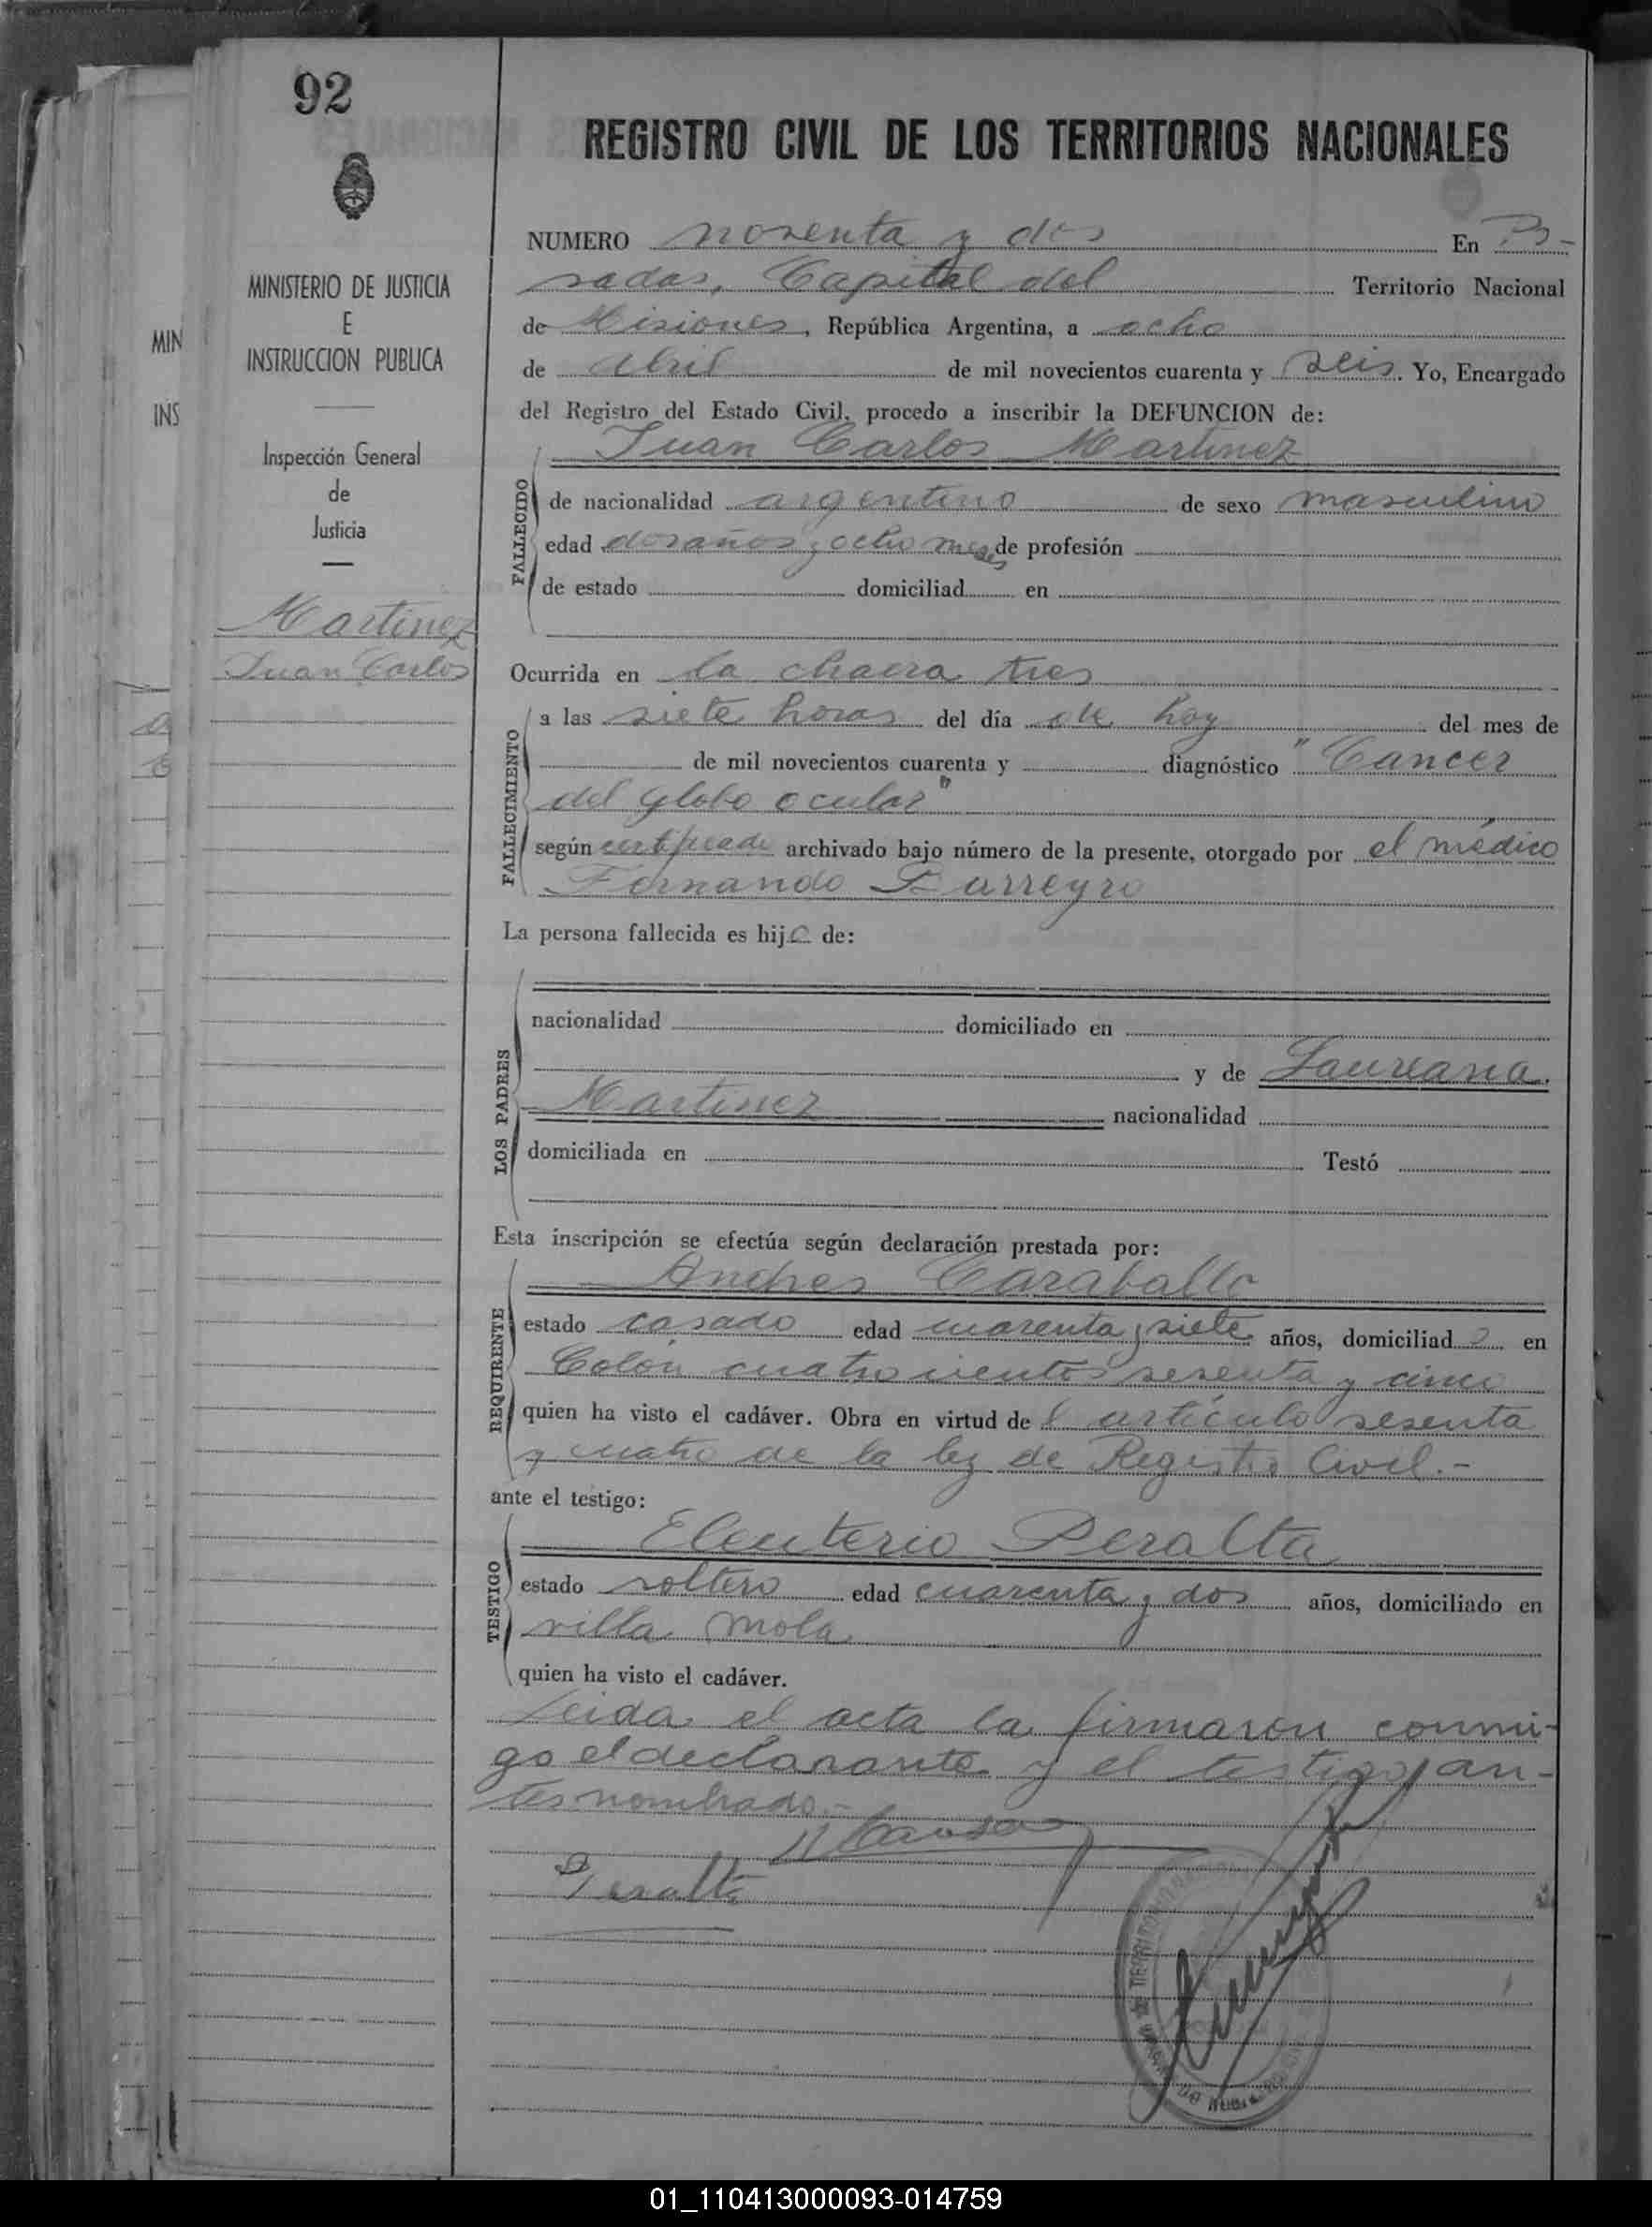 92
REGISTRO CIVIL DE LOS TERRITORIOS NACIONALES
MINISTERIO DE JUSTICIA
E
INSTRUCCION PUBLICA
Inspección General
de
Justicia
Martinez
Juan Carlos
MIN
INS
NUMERO noventa y dos En Po-
sadas, Capital del Territorio Nacional
de Misiones, República Argentina, a ocho
de Abril de mil novecientos cuarenta y seis. Yo, Encargado
del Registro del Estado Civil, procedo a inscribir la DEFUNCION de:
Juan Carlos Martinez
FALLECIDO
de nacionalidad argentino de sexo masculino
edad dos años y ocho meses de profesión
de estado domiciliad en
Ocurrida en la chacra tres
FALLECIMIENTO
a las siete horas del día de hoy del mes de
de mil novecientos cuarenta y diagnóstico "Cancer
del globo ocular"
según certificado archivado bajo número de la presente, otorgado por el médico
Fernando Barreyro
La persona fallecida es hijo de:
LOS PADRES
nacionalidad domiciliado en
y de Laureana
Martinez nacionalidad
domiciliada en Testó
Esta inscripción se efectúa según declaración prestada por:
REQUIRENTE
Andres Caraballo
estado casado edad cuarenta y siete años, domiciliado en
Colón cuatrocientos sesenta y cinco
quien ha visto el cadáver. Obra en virtud del artículo sesenta
y cuatro de la ley de Registro Civil.-
ante el testigo:
TESTIGO
Eleuterio Peralta
estado soltero edad cuarenta y dos años, domiciliado en
villa Mola
quien ha visto el cadáver.
Leida el acta la firmaron conmi-
go el declarante y el testigo an-
tes nombrado.-
Peralta
01_110413000093-014759